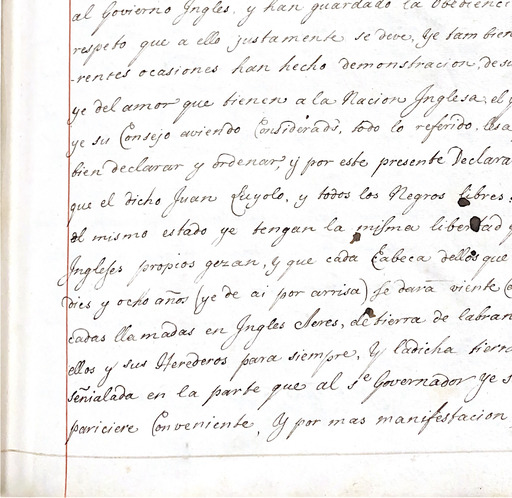 al Govierno Ingles, y han guardado la Obedienci
respeto que a ello justamente se deve, ye tambien
-rentes ocasiones han hecho demonstracion, de su
ye del amor que tienen a la Nacion Inglesa, el
ye su Consejo aviendo Considerado, todo lo referido,
bien declarar y ordenar, y por este presente Declara
que el dicho Juan Luyolo, y todos los Negros libres
el mismo estado ye tengan la misma libertad y
Ingleses propios gozan, y que cada Cabeca dellos que
dies y ocho años (ye de ai por arrisa) se dara viente
cadas llamadas en Ingles Acres, de tierra de labran
ellos y sus Herederos para siempre, Y ladicha tierra
señialada en la parte que al sr Governador ye s
pariciere Conveniente, Y por mas manifestacion